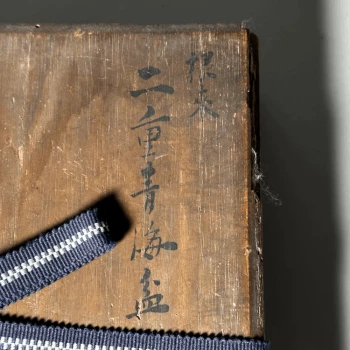 根来
二重青海盆